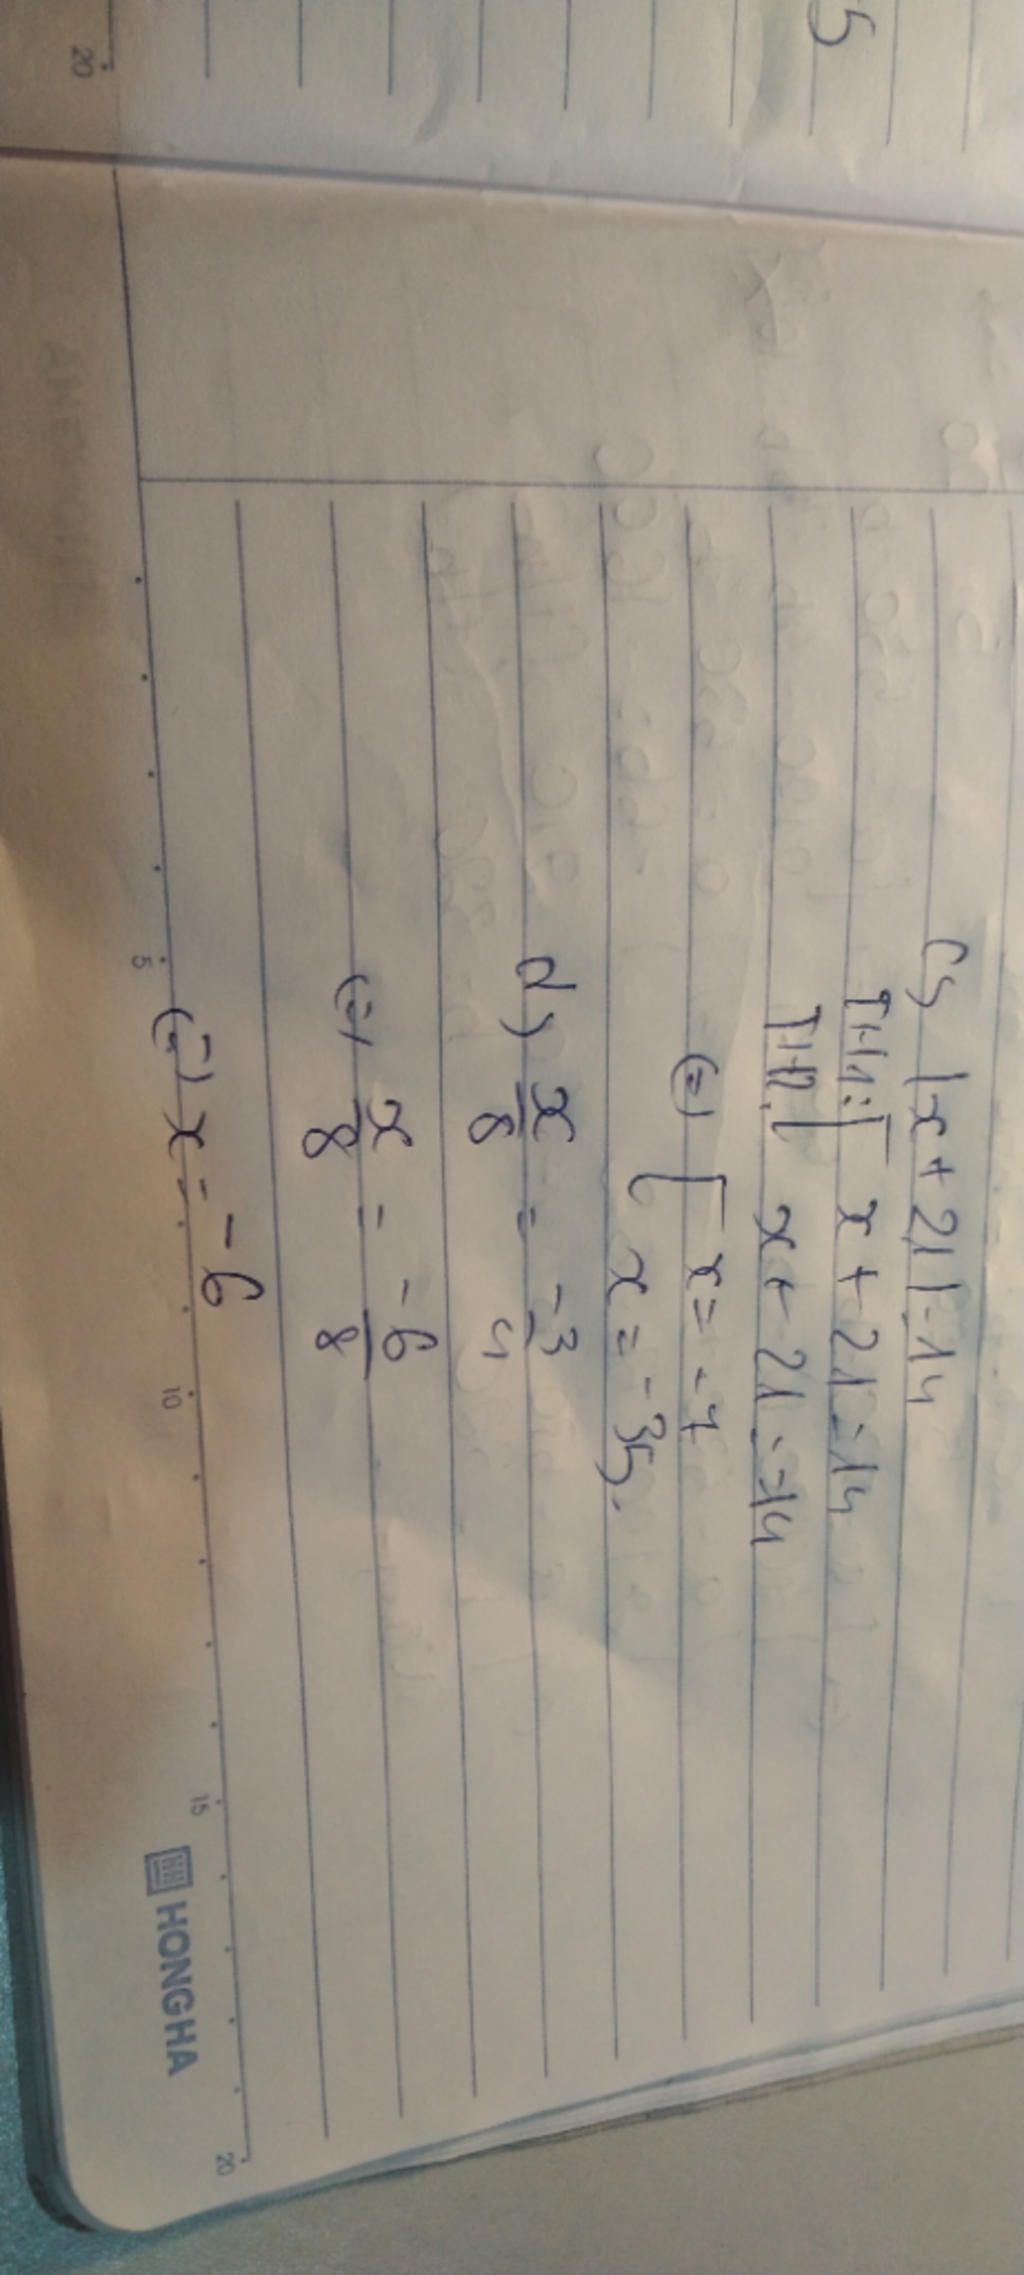 5
20
c) |x + 21| = 14
TH1: [ x + 21 = 14
TH2: [ x + 21 = -14
(=) [ x = -7
x = -35.
d) x/8 = -3/4
(=) x/8 = -6/8
(=) x = -6
5 10 15 20
HONGHA